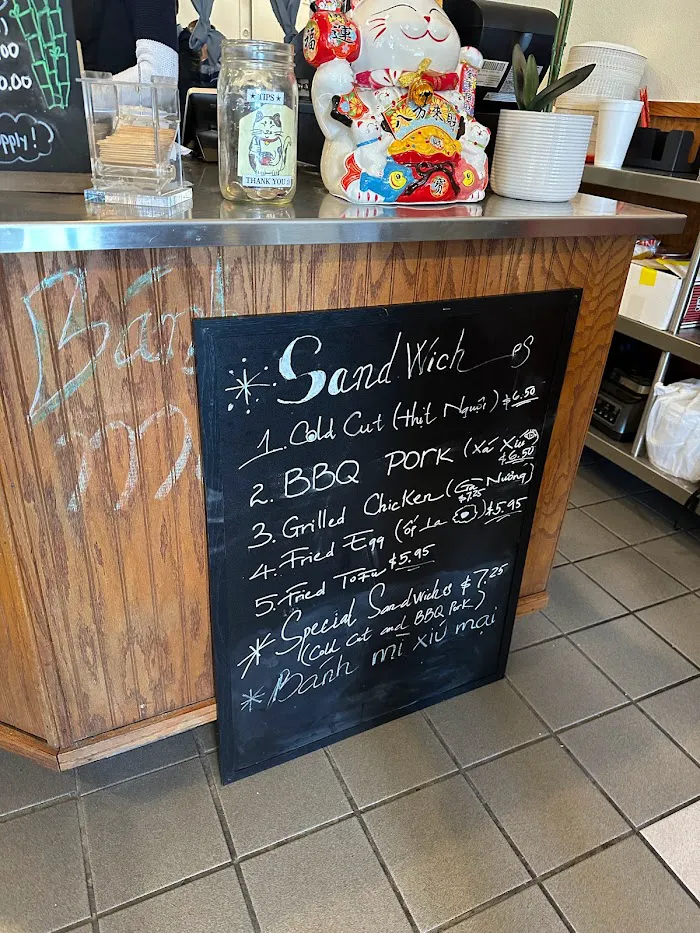 0.00
pply!
TIPS
THANK YOU
福
Bánh
mì
Sandwiches
1. Cold Cut (thịt Nguội) $6.50
2. BBQ Pork (Xá Xíu)
$6.50
3. Grilled Chicken (Gà Nướng)
$7.25
4. Fried Egg (ốp La) $5.95
5. Fried Tofu $5.95
Special Sandwiches $7.25
(Cold Cut and BBQ Pork)
Bánh mì xíu mại